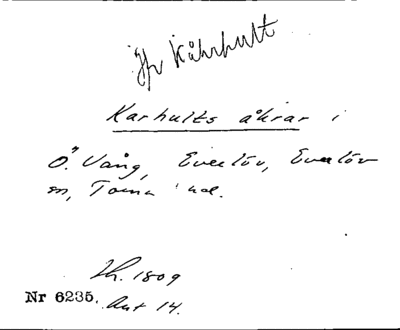 Jfr Kåhrhult
Karhults åkrar i
Ö. Vång, Everlöv, Everlöv
sn, Torna hd.
Lh. 1809
Nr 6235. Akt 14.